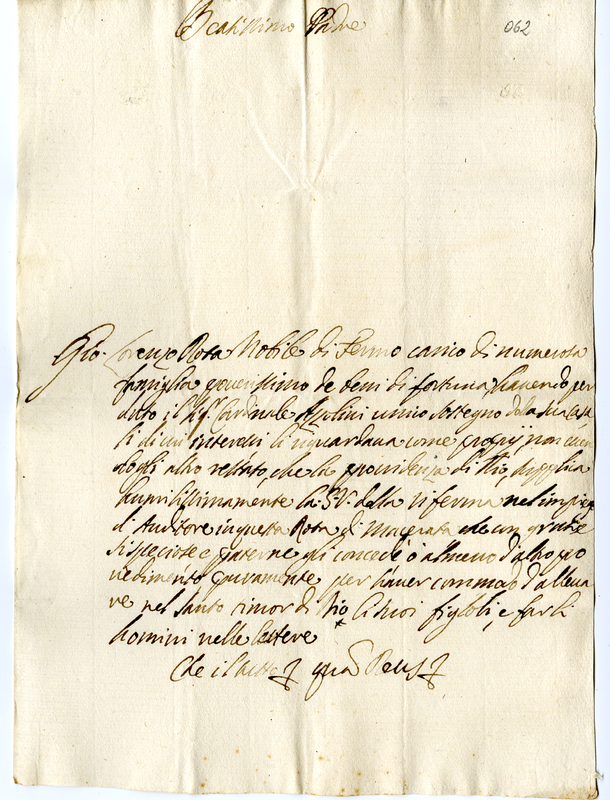 Beatissimo Padre
062
Gio. Lorenzo Rosa Nobile di Fermo carico di numerosa
famiglia poverissimo de beni di fortuna, havendo per
duto il Sig.r Cardinale Azzolini unico sostegno dela sua casa
li di cui interessi li riguardava come proprij, non
dogli altro restato, che la providenza di Dio, supplica
humilissimamente la S.V. della riferma nel impiego
d'Auditore in questa Rota di Macerata che con gratie
si speciose e paterne gli concede o almeno d'altro pro
vedimento quivamente per haver commodo d'alleva
re nel santo timor di Dio li suoi figlioli, e farli
homini nelle lettere
Che il tutto